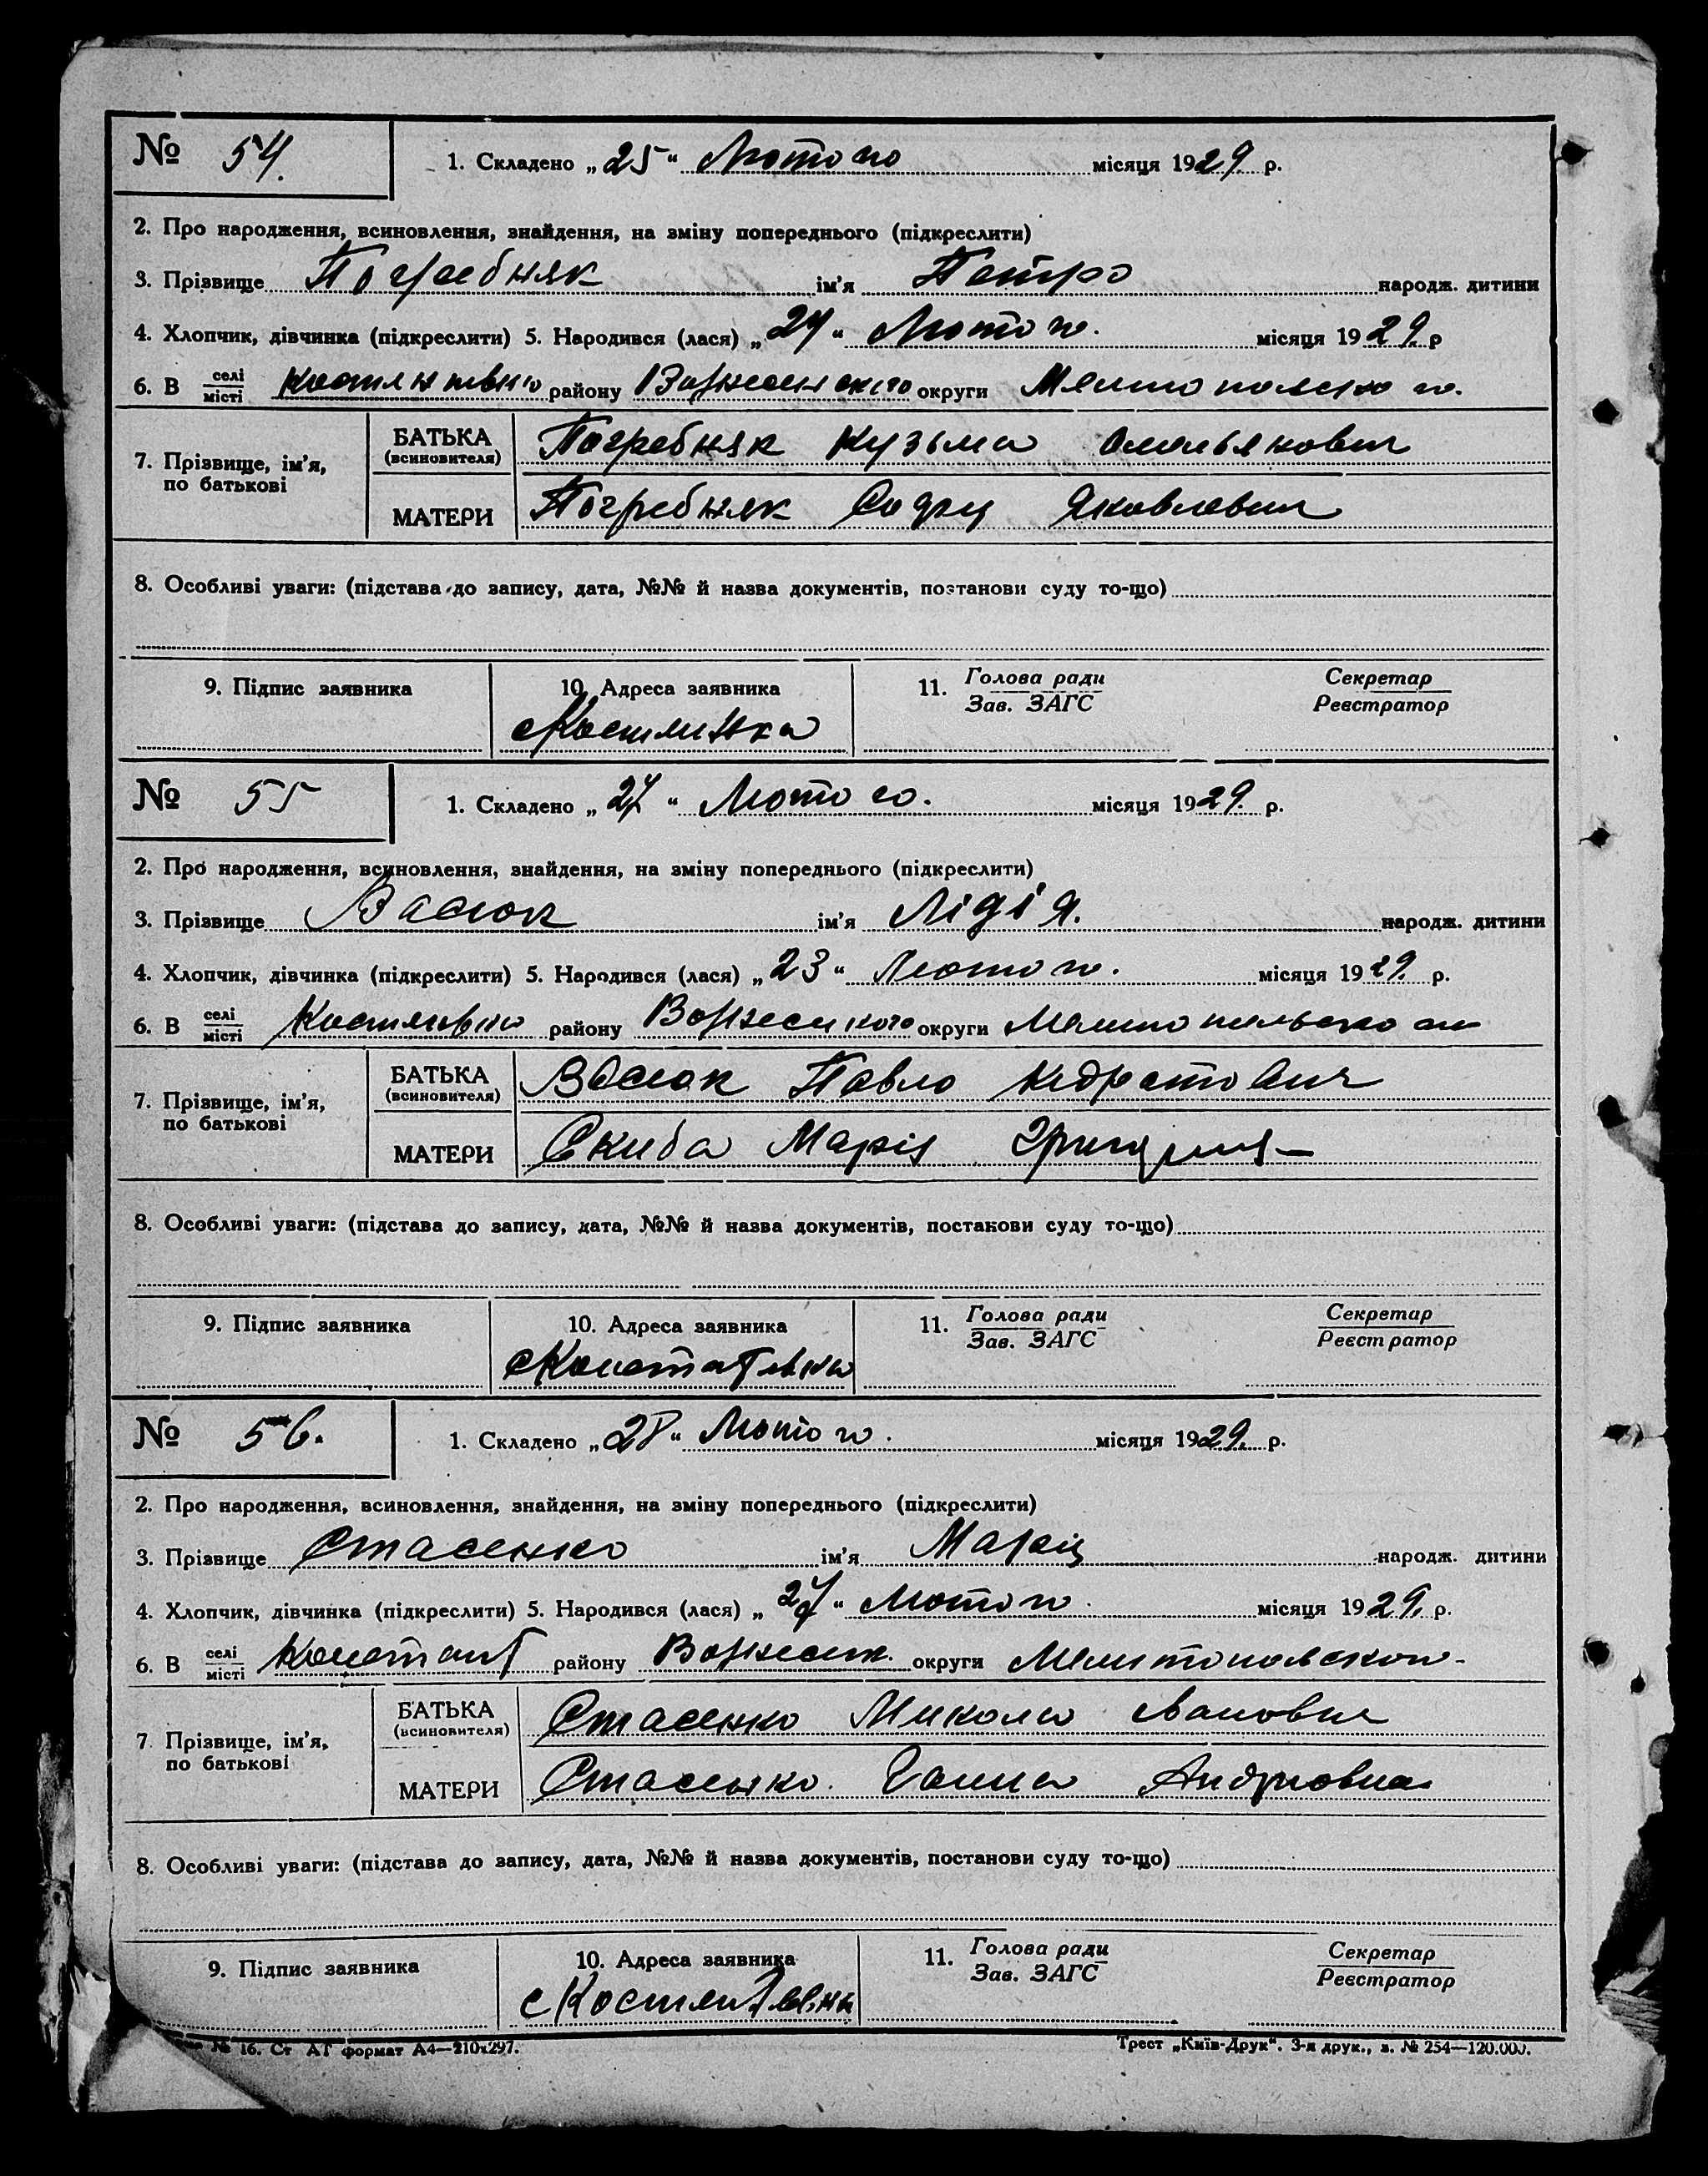 № 54. 1. Складено „25“ Лютого місяця 1929 р.
2. Про народження, всиновлення, знайдення, на зміну попереднього (підкреслити)
3. Прізвище Погребняк ім'я Петро народж. дитини
4. Хлопчик, дівчинка (підкреслити) 5. Народився (лася) „24“ Лютого. місяця 1929. р
6. В селі/місті району округи
7. Прізвище, ім'я, по батькові
БАТЬКА (всиновителя) Погребняк Кузьма Омельянович
МАТЕРИ Погребняк
8. Особливі уваги: (підстава до запису, дата, №№ й назва документів, постанови суду то-що)
9. Підпис заявника 10. Адреса заявника 11. Голова ради Секретар
Зав. ЗАГС Реєстратор
№ 55 1. Складено „27“ Лютого. місяця 1929. р.
2. Про народження, всиновлення, знайдення, на зміну попереднього (підкреслити)
3. Прізвище Васюк ім'я Лідія. народж. дитини
4. Хлопчик, дівчинка (підкреслити) 5. Народився (лася) „23“ Лютого. місяця 1929. р.
6. В селі/місті району округи
7. Прізвище, ім'я, по батькові
БАТЬКА (всиновителя) Васюк Павло
МАТЕРИ Скиба Марія
8. Особливі уваги: (підстава до запису, дата, №№ й назва документів, постанови суду то-що)
9. Підпис заявника 10. Адреса заявника 11. Голова ради Секретар
Зав. ЗАГС Реєстратор
№ 56. 1. Складено „28“ Лютого. місяця 1929. р.
2. Про народження, всиновлення, знайдення, на зміну попереднього (підкреслити)
3. Прізвище Стасенко ім'я народж. дитини
4. Хлопчик, дівчинка (підкреслити) 5. Народився (лася) „27“ Лютого. місяця 1929. р.
6. В селі/місті району округи
7. Прізвище, ім'я, по батькові
БАТЬКА (всиновителя) Стасенко Микола
МАТЕРИ Стасенко. Ганна
8. Особливі уваги: (підстава до запису, дата, №№ й назва документів, постанови суду то-що)
9. Підпис заявника 10. Адреса заявника 11. Голова ради Секретар
Зав. ЗАГС Реєстратор
№ 16. Ст АГ формат А4—210х297. Трест „Київ-Друк“. 3-я друк., з. № 254—120.000.